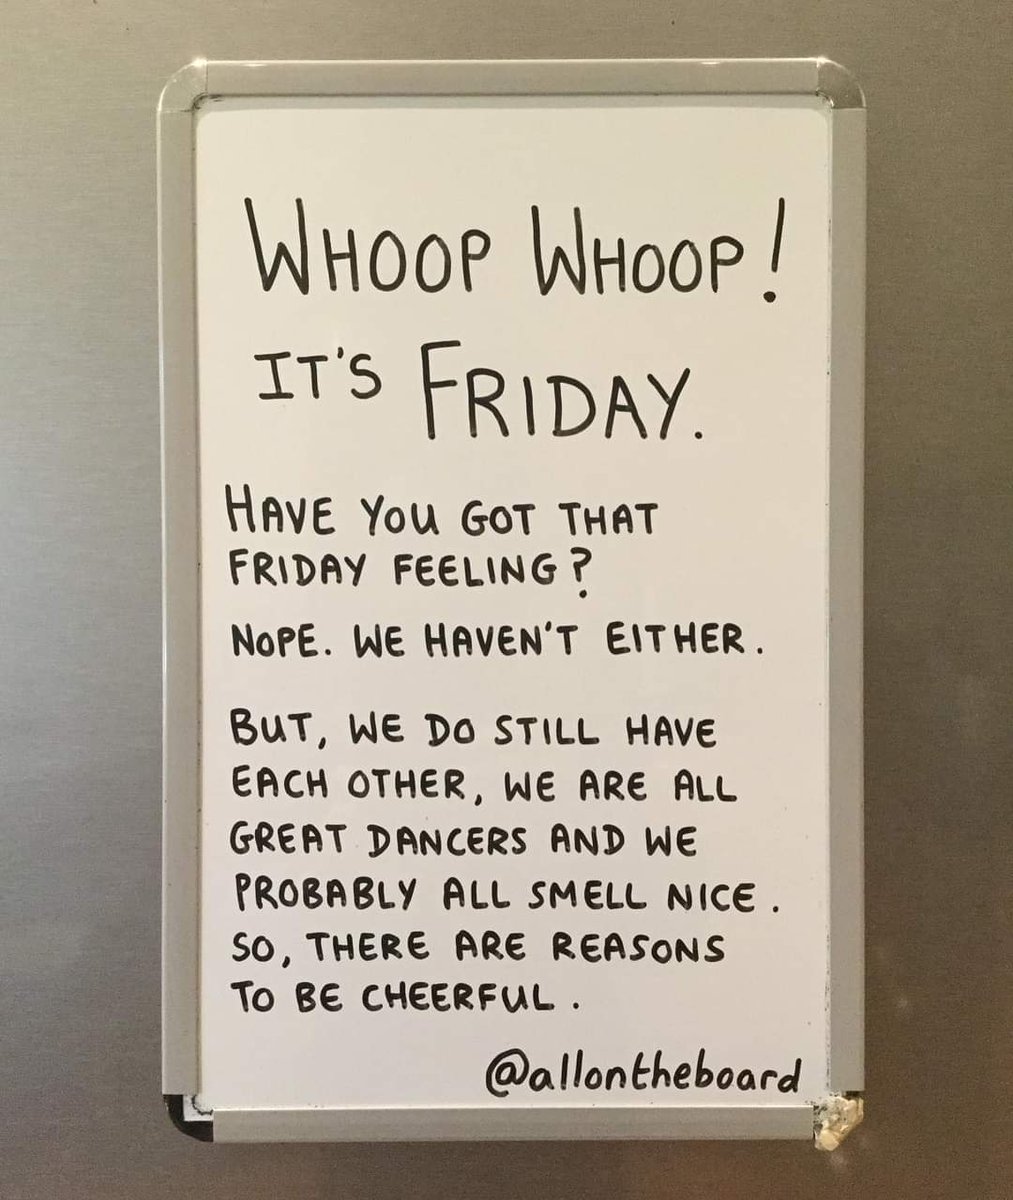 WHOOP WHOOP!
IT'S FRIDAY.
HAVE YOU GOT THAT
FRIDAY FEELING?
NOPE. WE HAVEN'T EITHER.
BUT, WE DO STILL HAVE
EACH OTHER, WE ARE ALL
GREAT DANCERS AND WE
PROBABLY ALL SMELL NICE.
SO, THERE ARE REASONS
TO BE CHEERFUL.
@allontheboard